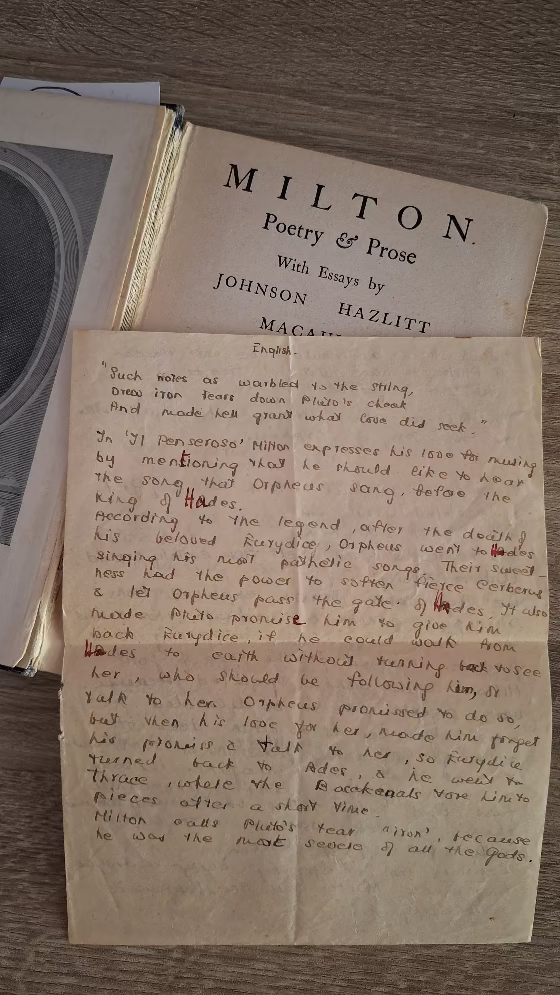 MILTON.
Poetry & Prose
With Essays by
JOHNSON HAZLITT
English-
"Such notes as warbled to the string,
Drew iron tears down Pluto's cheek
And made hell grant what love did seek."
In 'Il Penseroso' Milton expresses his love for musing
by mentioning that he should like to hear
the song that Orpheus sang, before the
King of Hades.
According to the legend, after the death of
his beloved Eurydice, Orpheus went to Hades
singing his most pathetic songs. Their sweet-
ness had the power to soften fierce Cerberus
& let Orpheus pass the gate of Hades. It also
made Pluto promise him to give him
back Eurydice, if he could walk from
Hades to earth without turning back to see
her, who should be following him, or
talk to her. Orpheus promissed to do so,
but then his love for her, made him forget
his promiss & talk to her, so Eurydice
turned back to Ades, & he went to
Thrace, where the Bacchenals tore him to
pieces after a short time.
Milton calls Pluto's tear "iron", because
he was the most severe of all the Gods.